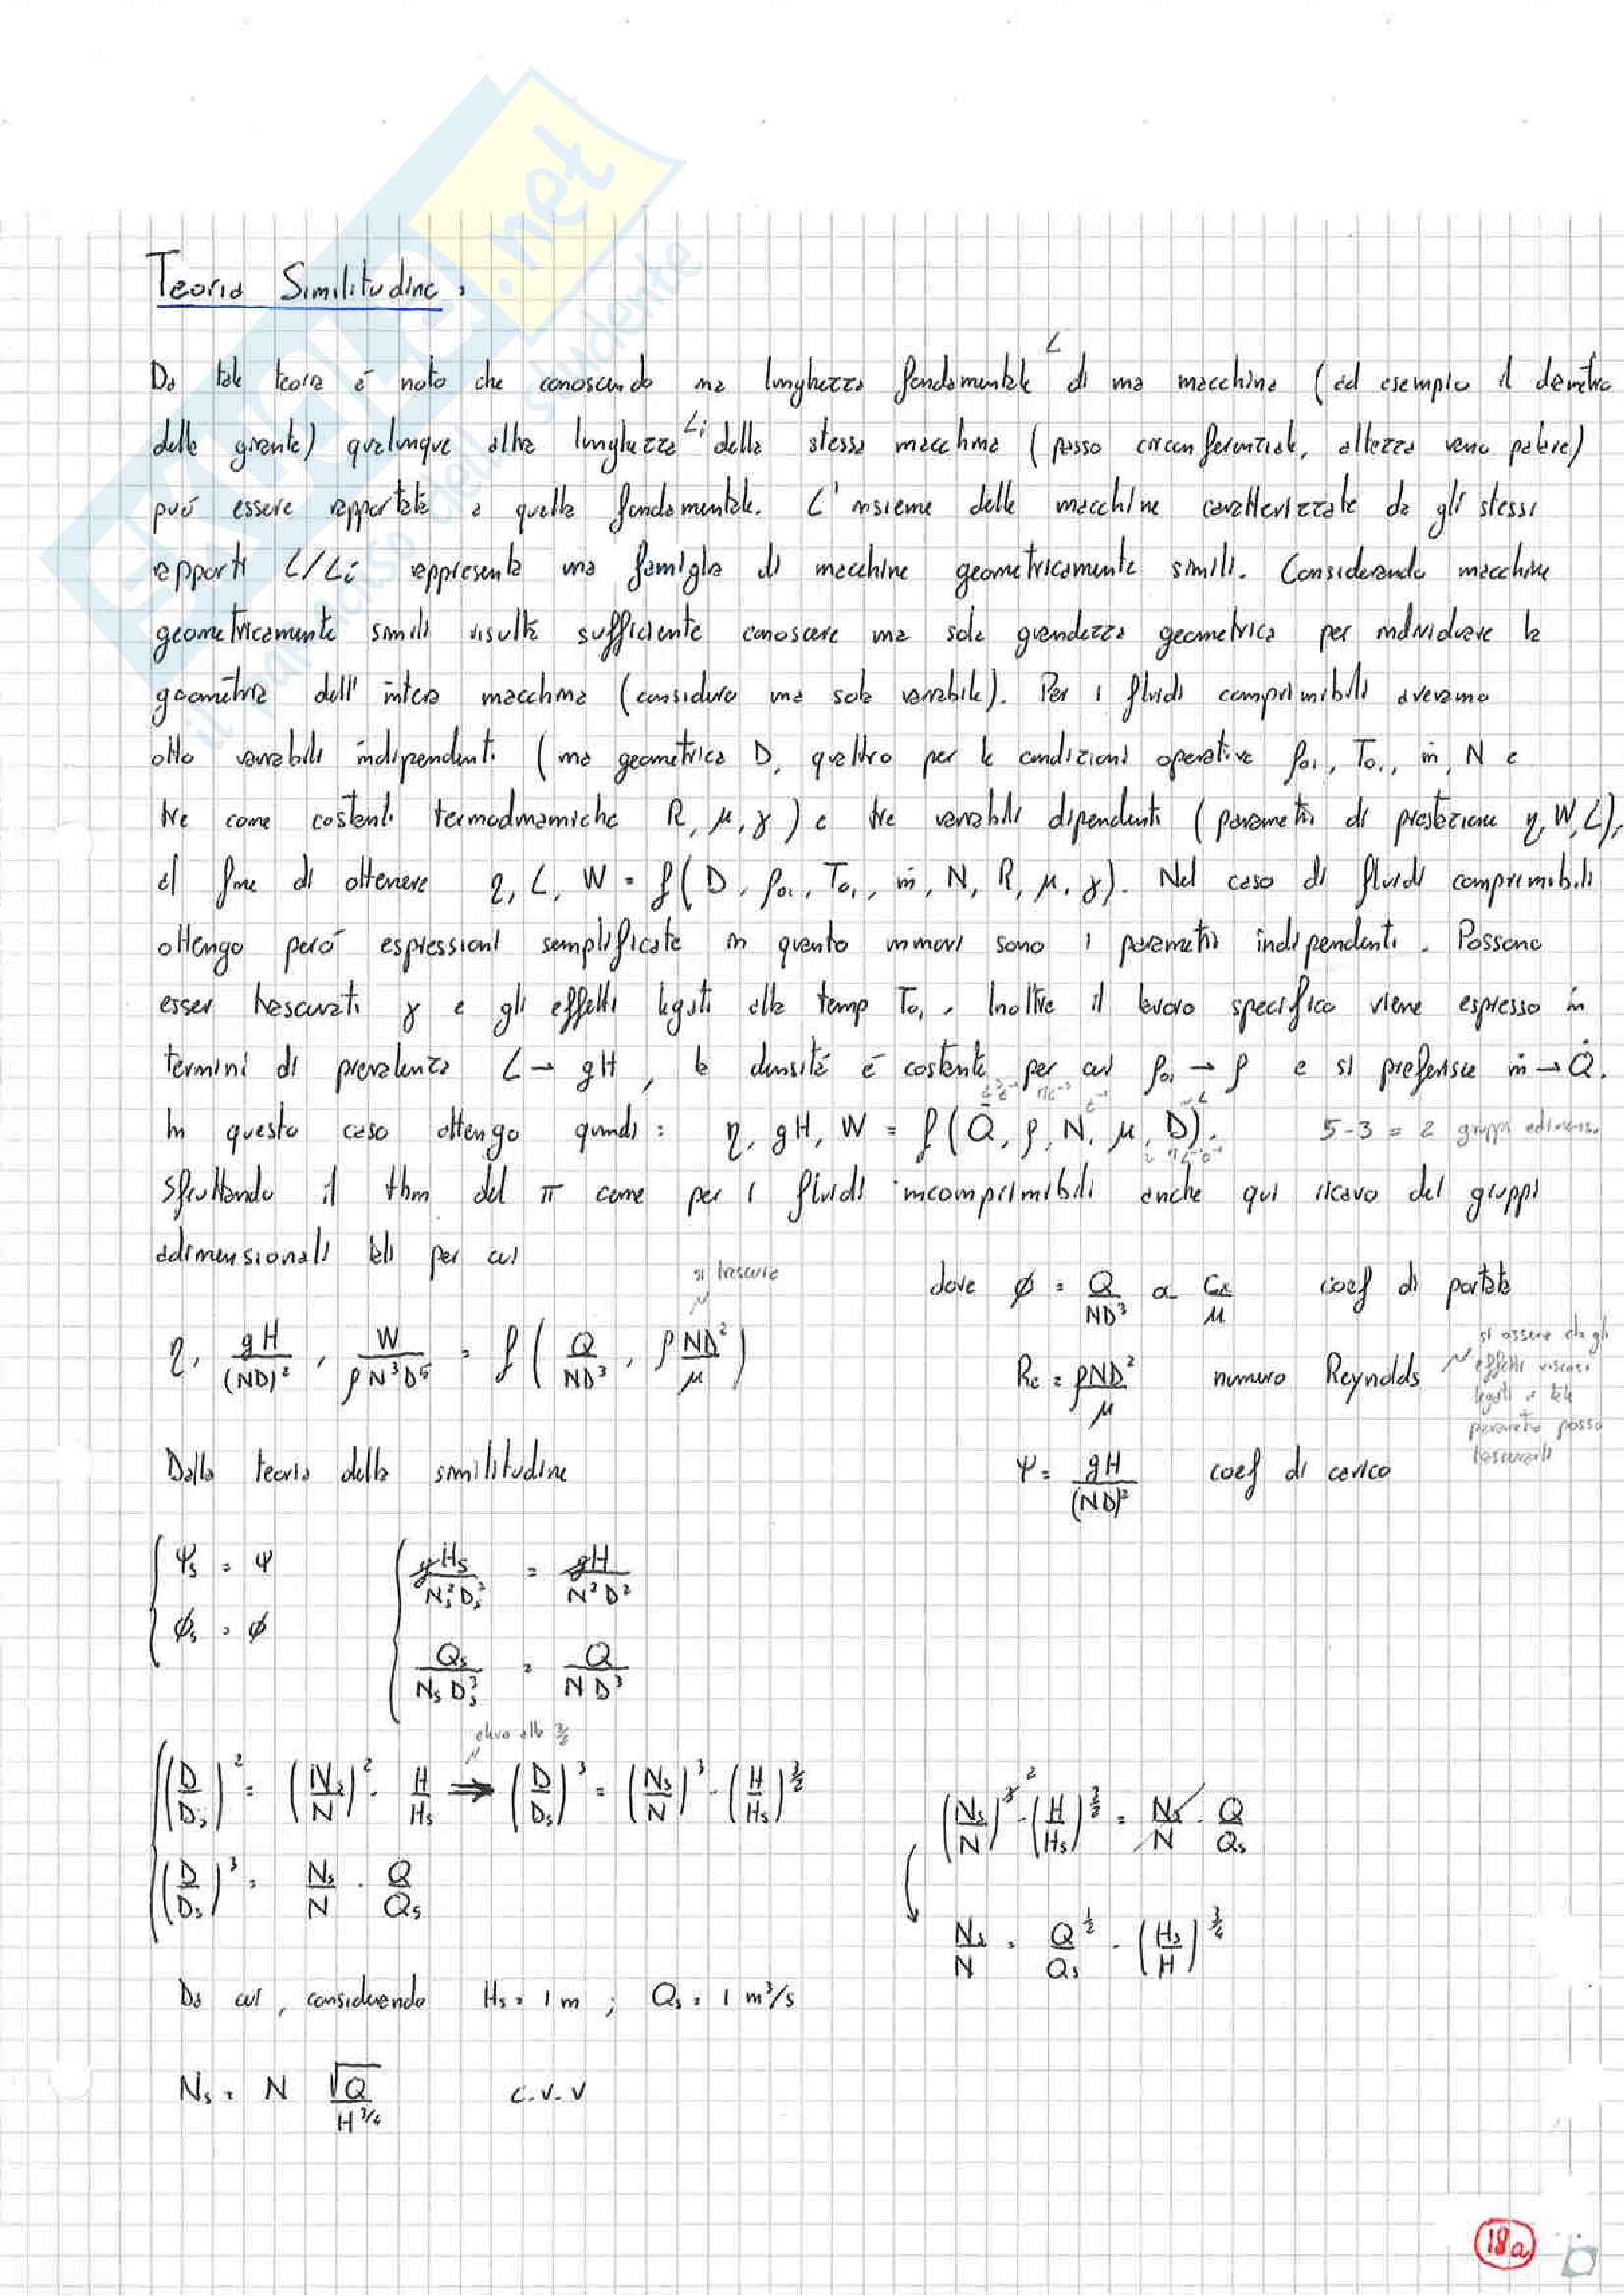 Teoria Similitudine:
Da tale teoria é noto che conoscendo una lunghezza fondamentale L di una macchina (ad esempio il diametro
della girante) qualunque altra lunghezza Li della stessa macchina (passo circonferenziale, altezza vano palare)
puó essere rapportata a quella fondamentale. L'insieme delle macchine caratterizzate da gli stessi
rapporti L/Li rappresenta una famiglia di macchine geometricamente simili. Considerando macchine
geometricamente simili risulta sufficiente conoscere una sola grandezza geometrica per individuare la
geometria dell'intera macchina (considero una sola variabile). Per i fluidi comprimibili avevamo
otto variabili indipendenti (una geometrica D, quattro per le condizioni operative ρ01, T01, ṁ, N e
tre come costanti termodinamiche R, μ, γ) e tre variabili dipendenti (parametri di prestazione η, W, L),
al fine di ottenere η, L, W = f(D, ρ01, T01, ṁ, N, R, μ, γ). Nel caso di fluidi comprimibili
ottengo peró espressioni semplificate in quanto minori sono i parametri indipendenti. Possono
esser trascurati γ e gli effetti legati alla temp T01. Inoltre il lavoro specifico viene espresso in
termini di prevalenza L → gH, la densitá é costante per cui ρ01 → ρ e si preferisce ṁ → Q̇.
In questo caso ottengo quindi: η, gH, W = f(Q, ρ, N, μ, D). 5-3 = 2 gruppi adimens.
Sfruttando il thm del π come per i fluidi incomprimibili anche qui ricavo dei gruppi
adimensionali tali per cui
si trascura
dove φ = Q/ND³ α Cx/μ coef di portata
η, gH/(ND)², W/ρN³D⁵ = f(Q/ND³, ρND²/μ)
Re = ρND²/μ numero Reynolds
si osserva che gli
effetti viscosi
legati a tale
parametro posso
trascurarli
Dalla teoria della similitudine
Ψ = gH/(ND)² coef di carico
Ψs = Ψ gHs/Ns²Ds² = gH/N²D²
φs = φ Qs/NsDs³ = Q/ND³
elevo alla 3/2
(D/Ds)² = (Ns/N)² · H/Hs ⇒ (D/Ds)³ = (Ns/N)³ · (H/Hs)^3/2
(D/Ds)³ = Ns/N · Q/Qs
(Ns/N)^3 2 · (H/Hs)^3/2 = Ns/N · Q/Qs
Ns/N = Q^1/2/Qs · (Hs/H)^3/4
Da cui, considerando Hs = 1 m ; Qs = 1 m³/s
Ns = N √Q/H^3/4 c.v.v
18a
.net
il paradiso dello studente